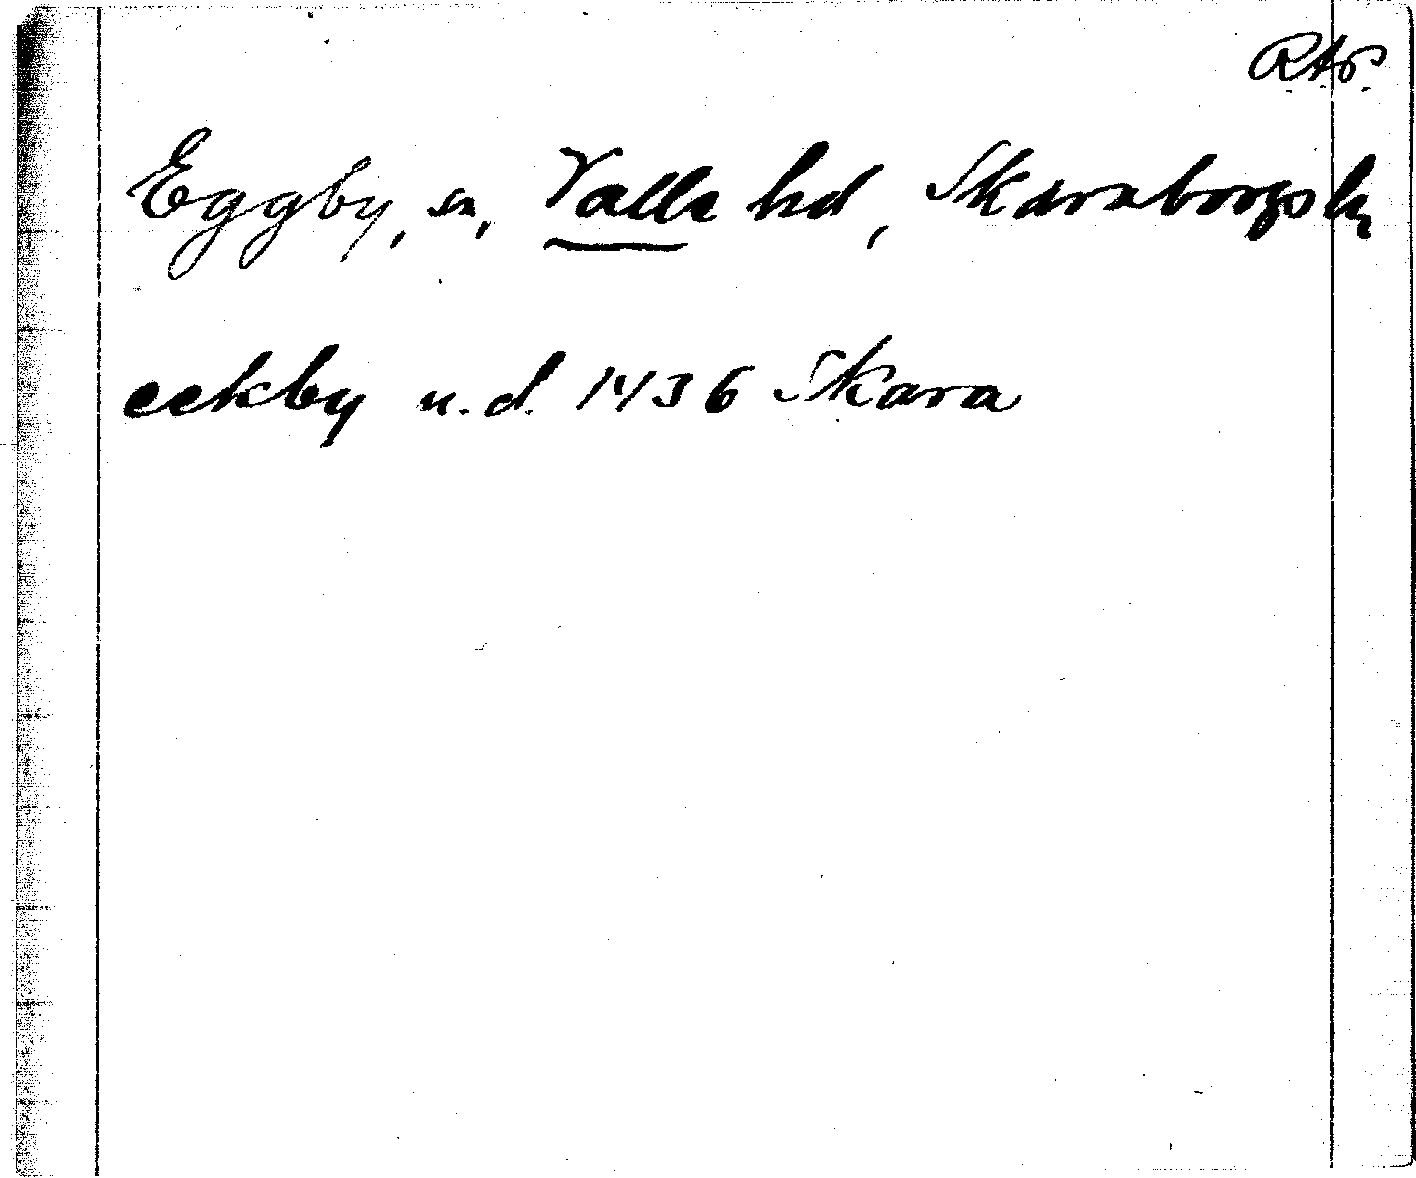 RAp.
Eggby, sn, Valle hd, Skaraborgs ln
eekby u.d. 1436 Skara